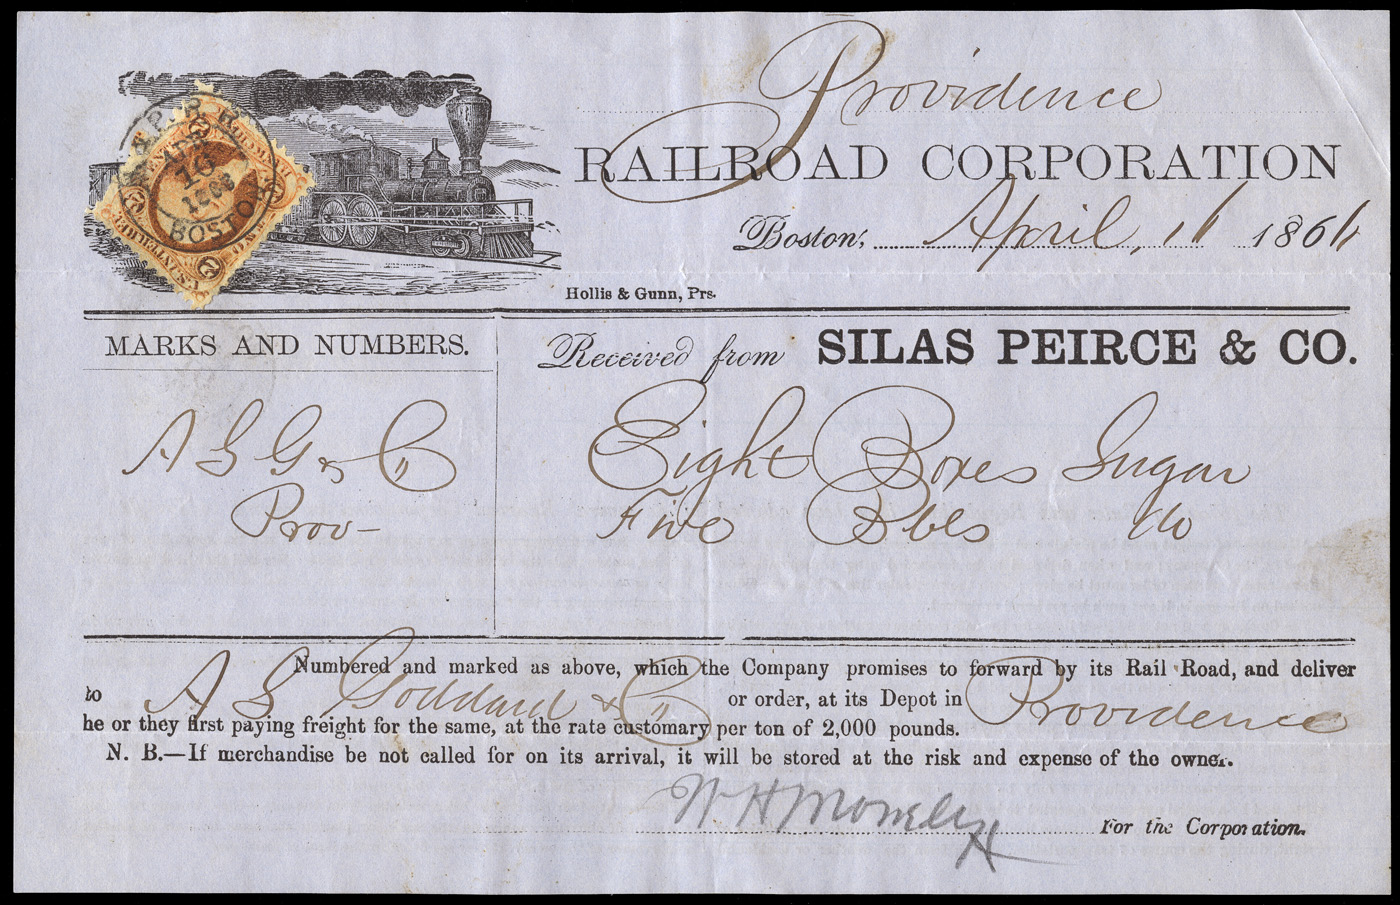 Providence
RAILROAD CORPORATION
Boston, April, 16 1866
Hollis & Gunn, Prs.
BOSTON
MARKS AND NUMBERS.
Received from SILAS PEIRCE & CO.
A S G & Co
Prov-
Eight Boxes Sugar
Five Bbls do
Numbered and marked as above, which the Company promises to forward by its Rail Road, and deliver
to A S Goddard & Co or order, at its Depot in Providence
he or they first paying freight for the same, at the rate customary per ton of 2,000 pounds.
N. B.—If merchandise be not called for on its arrival, it will be stored at the risk and expense of the owner.
W H For the Corporation.